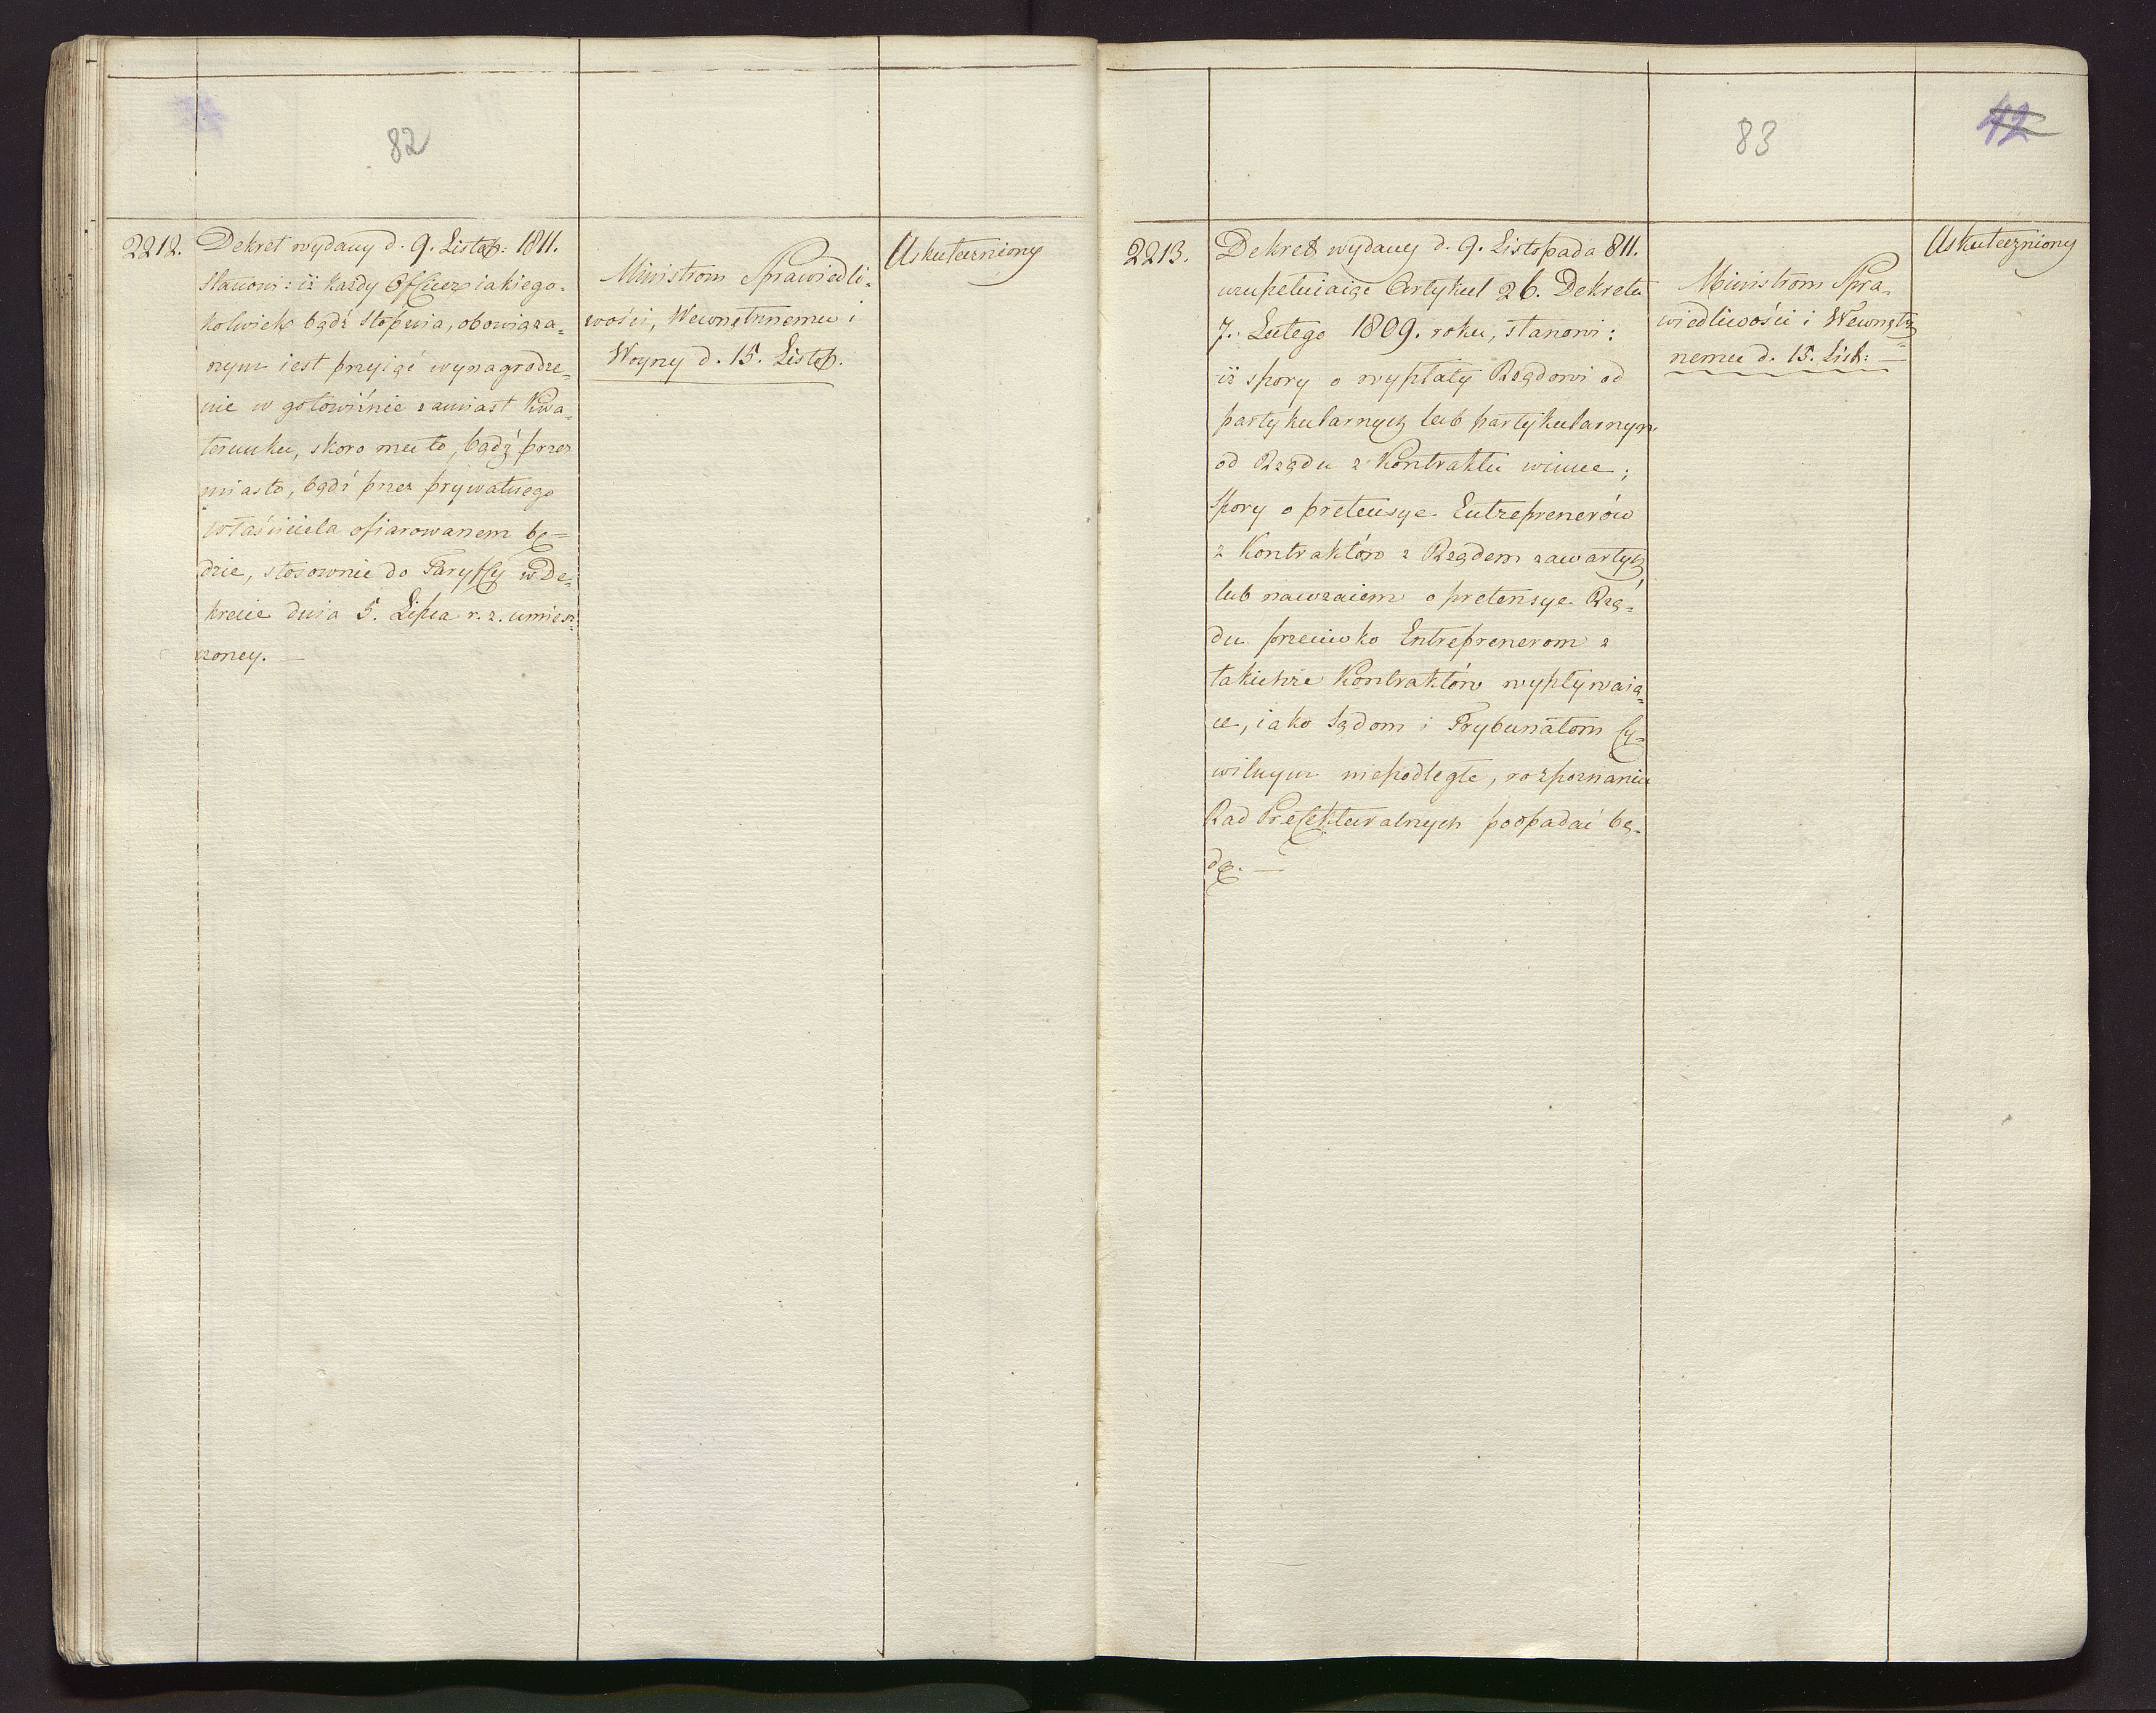 82
2212.
Dekret wydany d. 9. Listop: 1811.
stanowi: iż każdy Officer iakiego-
kolwiek bądź stopnia, obowiąza-
nym iest przyiąć wynagrodze-
nie w gotowiźnie zamiast Kwa-
terunku, skoro mu to, bądź przez
miasto, bądź przez prywatnego
właściciela ofiarowanem bę-
dzie, stosownie do Taryffy w De-
krecie dnia 5. Lipca r. z. umiesz-
czoney. —
Ministrom Sprawiedli-
wości, Wewnętrznemu i
Woyny d. 15. Listop.
Uskuteczniony
83
42
2213.
Dekret wydany d. 9. Listopada 811.
uzupełniaiąc Artykuł 26. Dekretu
7. Lutego 1809. roku, stanowi:
iż spory o wypłaty Rządowi od
partykularnych lub partykularnym
od Rządu z Kontraktu winne;
spory o pretensye Entreprenerów
z Kontraktów z Rządem zawartych
lub nawzaiem o pretensye Rzą-
du przeciwko Entreprenerom z
takichże Kontraktów wypływaią-
ce, iako Sądom i Trybunałom Cy-
wilnym niepodległe, rozpoznaniu
Rad Prefekturalnych podpadać bę-
dą. —
Ministrom Spra-
wiedliwości i Wewnętrz-
nemu d. 15. List: —
Uskuteczniony